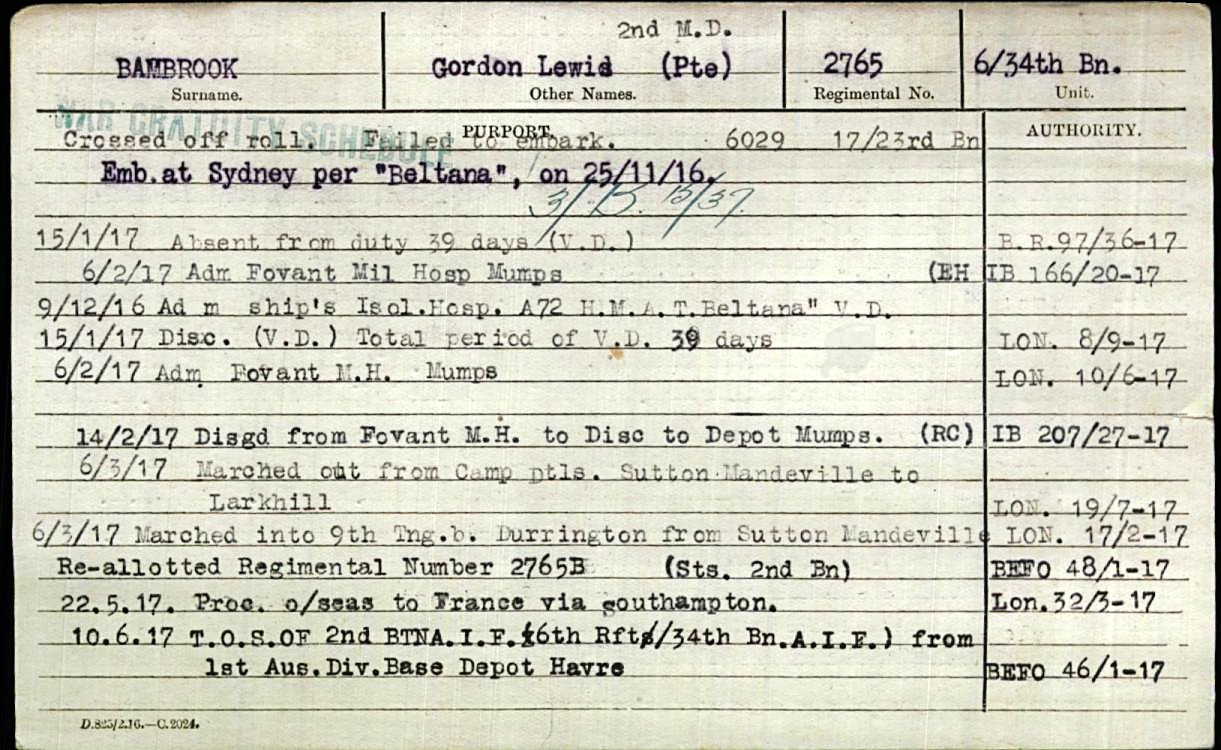 2nd M.D.
BAMBROOK Gordon Lewis (Pte) 2765 6/34th Bn.
Surname. Other Names. Regimental No. Unit.
WAR GRATUITY SCHEDULE
PURPORT. AUTHORITY.
Crossed off roll. Failed to embark. 6029 17/23rd Bn
Emb.at Sydney per "Beltana", on 25/11/16.
15/37
15/1/17 Absent from duty 39 days (V.D.) B.R.97/36-17
6/2/17 Adm Fovant Mil Hosp Mumps (EH IB 166/20-17
9/12/16 Ad m ship's Isol.Hosp. A72 H.M.A.T.Beltana" V.D.
15/1/17 Disc. (V.D.) Total period of V.D. 39 days LON. 8/9-17
6/2/17 Adm Fovant M.H. Mumps LON. 10/6-17
14/2/17 Disgd from Fovant M.H. to Disc to Depot Mumps. (RC) IB 207/27-17
6/3/17 Marched out from Camp ptls. Sutton Mandeville to
Larkhill LON. 19/7-17
6/3/17 Marched into 9th Tng.b. Durrington from Sutton Mandeville LON. 17/2-17
Re-allotted Regimental Number 2765B (Sts. 2nd Bn) BEFO 48/1-17
22.5.17. Proc. o/seas to France via southampton. Lon.32/3-17
10.6.17 T.O.S.OF 2nd BTNA.I.F.(6th Rfts/34th Bn.A.I.F.) from
1st Aus.Div.Base Depot Havre BEFO 46/1-17
D.825/2.16.—C.2024.